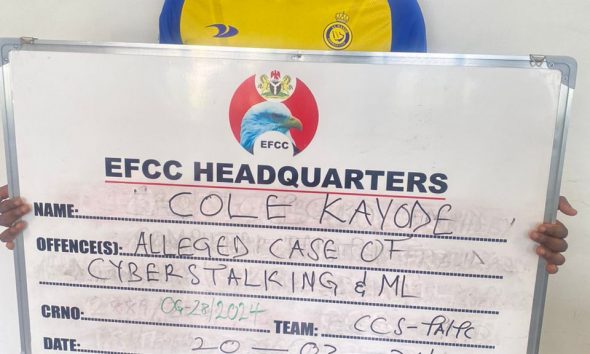 EFCC
EFCC HEADQUARTERS
NAME: COLE KAYODE
OFFENCE(S): ALLEGED CASE OF
CYBERSTALKING & ML
CRNO: OG-28/2024 TEAM: CCS-
DATE: 20-03-